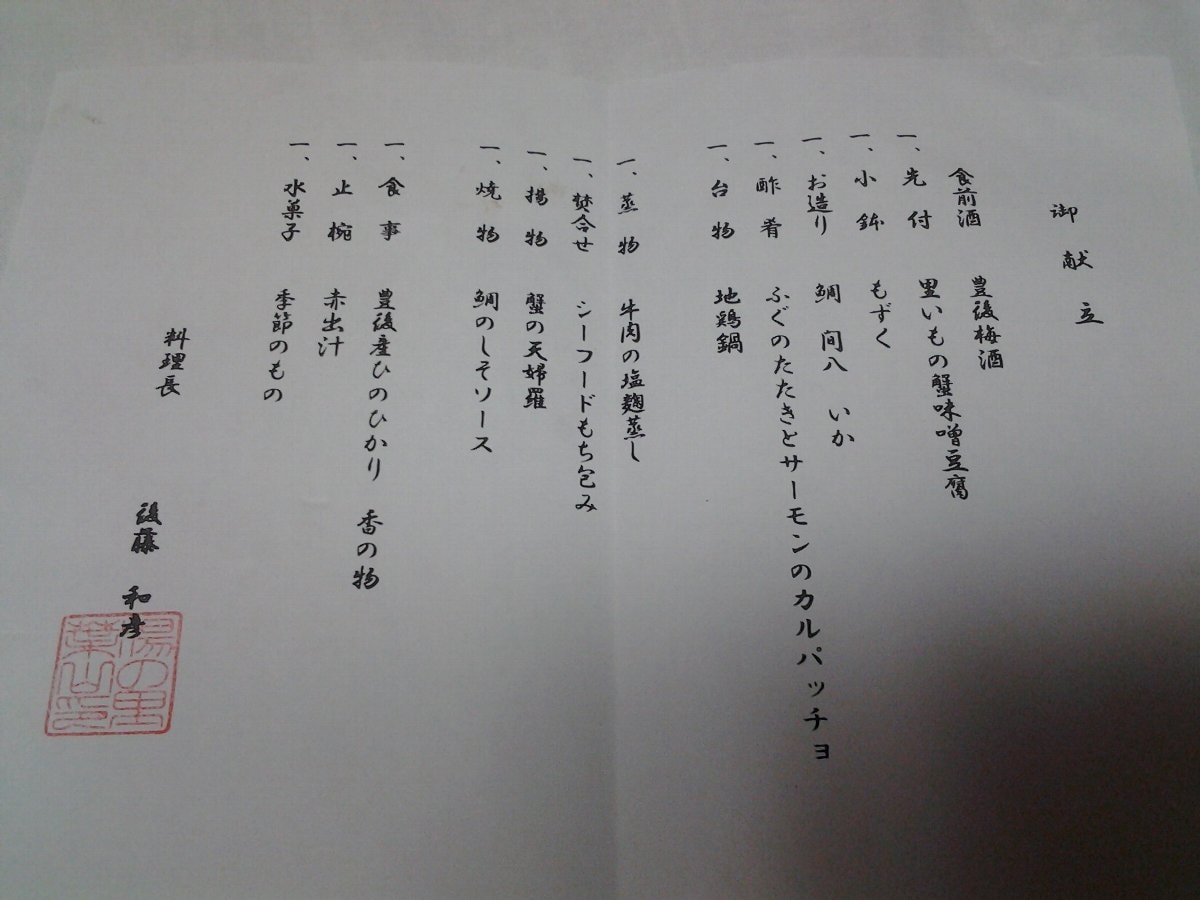 御献立
食前酒 豊後梅酒
一、先付 里いもの蟹味噌豆腐
一、小鉢 もずく
一、お造り 鯛 間八 いか
一、酢肴 ふぐのたたきとサーモンのカルパッチョ
一、台物 地鶏鍋
一、蒸物 牛肉の塩麹蒸し
一、焚合せ シーフードもち包み
一、揚物 蟹の天婦羅
一、焼物 鯛のしそソース
一、食事 豊後産ひのひかり 香の物
一、止椀 赤出汁
一、水菓子 季節のもの
料理長 後藤 和彦
湯の里
葉山印